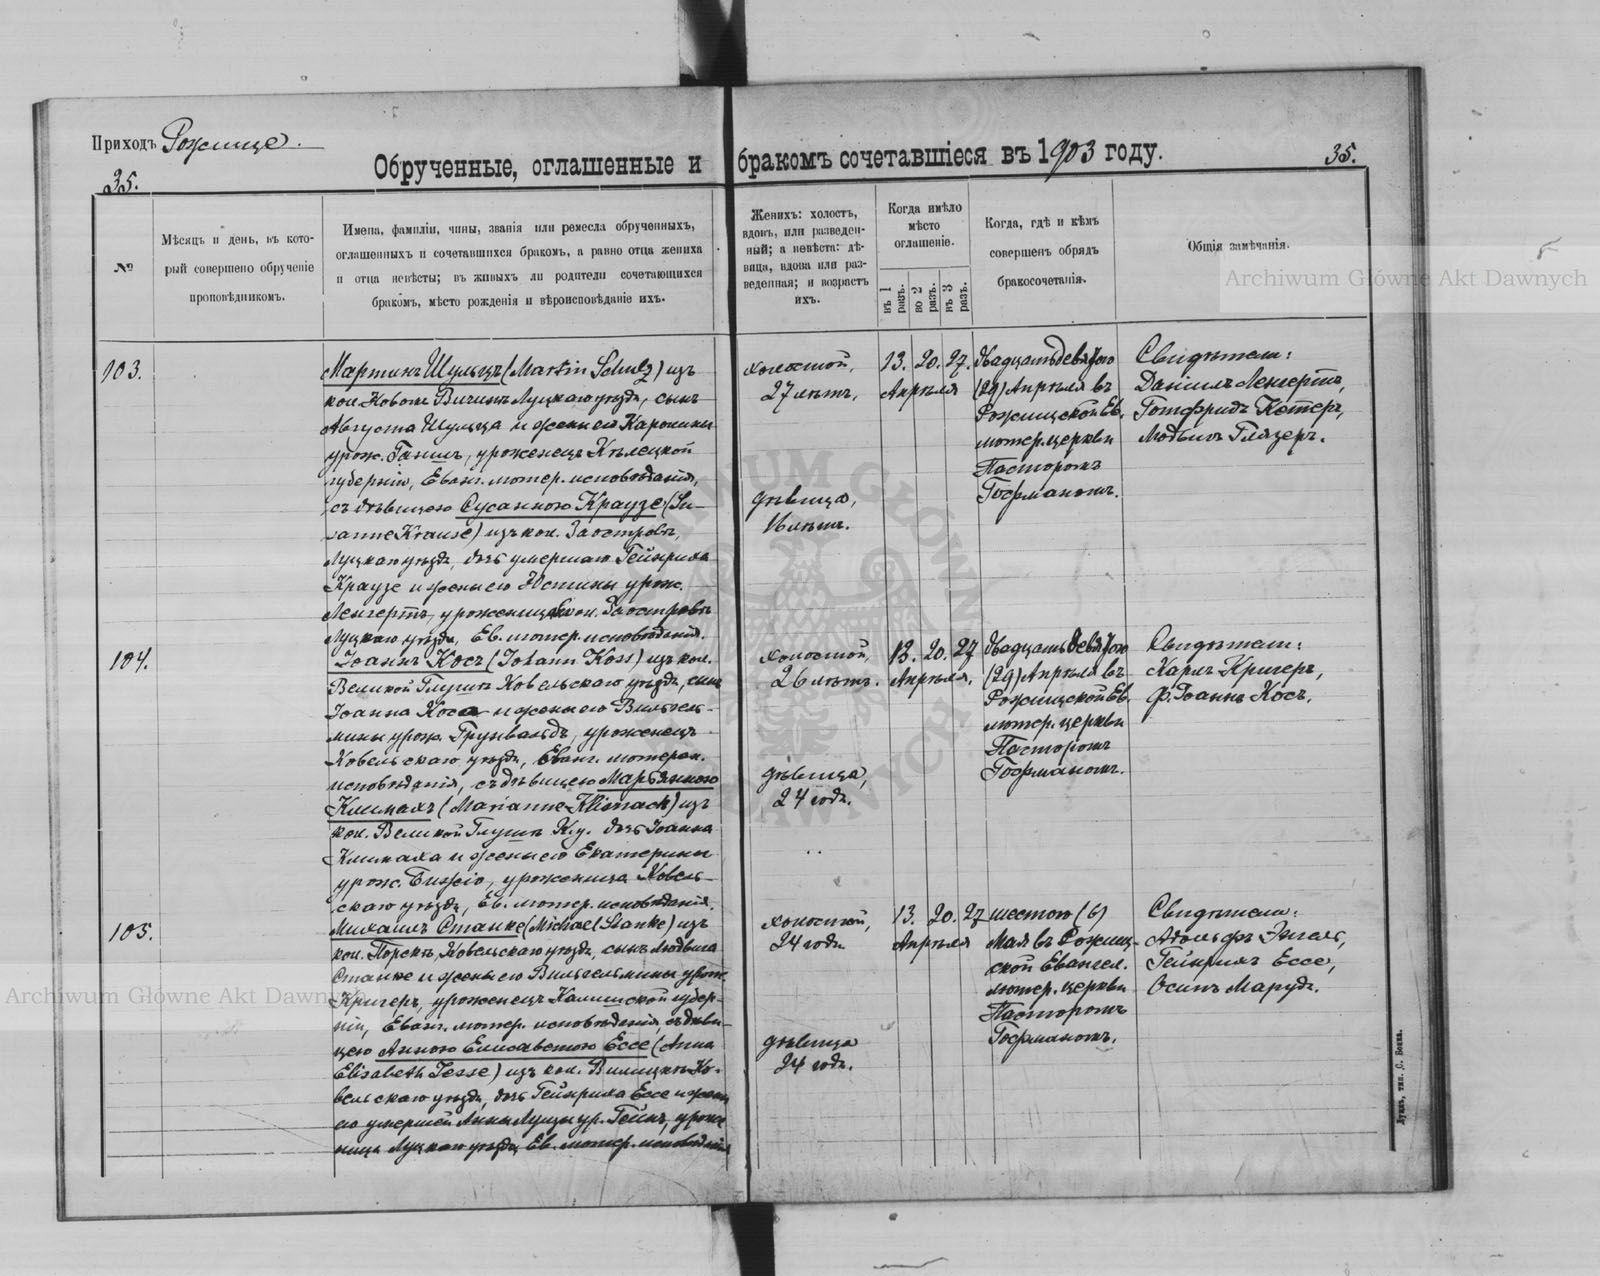 Приходъ Рожище.
35.
Обрученные, оглашенные и бракомъ сочетавшіеся въ 1903 году.
35.
№
Мѣсяцъ и день, въ кото-
рый совершено обрученіе
проповѣдникомъ.
Имена, фамиліи, чины, званія или ремесла обрученныхъ,
оглашенныхъ и сочетавшихся бракомъ, а равно отца жениха
и отца невѣсты; въ живыхъ ли родители сочетающихся
бракомъ, мѣсто рожденія и вѣроисповѣданіе ихъ.
Женихъ: холостъ,
вдовъ, или разведен-
ный; а невѣста: дѣ-
вица, вдова или раз-
веденная; и возрастъ
ихъ.
Когда имѣло
мѣсто
оглашеніе.
въ 1 разъ.
во 2 разъ.
въ 3 разъ.
Когда, гдѣ и кѣмъ
совершенъ обрядъ
бракосочетанія.
Общія замѣчанія.
103.
Мартинъ Шульцъ (Martin Schulz) изъ
кол. Новоле Вичинъ Луцкаго уѣзда, сынъ
Августа Шульца и жены его Каролины
урож. Ганшъ, уроженецъ Кѣлецкой
губерніи, Еванг. лютер. исповѣданія,
съ дѣвицею Сусанною Краузе (Su-
sanne Krause) изъ кол. Заостровъ,
Луцкаго уѣзда, дочь умершаго Гейнриха
Краузе и жены его Юстины урож.
Ленгертъ, уроженица кол. Заостровъ
Луцкаго уѣзда, Ев. лютер. исповѣданія.
холостой,
27 лѣтъ,
дѣвица,
18 лѣтъ.
13. 20. 27.
Апрѣля
двадцать девятого
(29) Апрѣля въ
Рожищской Ев.
лютер. церкви
Пасторомъ
Гофманомъ.
Свидѣтели:
Даніилъ Ленгертъ,
Готфридъ Кетеръ,
Людвигъ Глязеръ.
104.
Іоаннъ Косъ (Johann Koss) изъ кол.
Великой Глушъ Ковельскаго уѣзда, сынъ
Іоанна Коса и жены его Вильгель-
мины урож. Грунвальдъ, уроженецъ
Ковельскаго уѣзда, Еванг. лютеран.
исповѣданія, съ дѣвицею Марьянною
Климахъ (Marianne Klimach) изъ
кол. Великой Глушъ К. у. дочь Іоанна
Климаха и жены его Екатерины
урож. Бижіо, уроженица Ковель-
скаго уѣзда, Ев. лютер. исповѣданія.
холостой,
26 лѣтъ.
дѣвица,
24 года.
13. 20. 27
Апрѣля.
двадцать девятого
(29) Апрѣля въ
Рожищской Ев.
лютер. церкви
Пасторомъ
Гофманомъ.
Свидѣтели:
Карлъ Кригеръ,
Іоаннъ Косъ.
105.
Михаилъ Станке (Michael Stanke) изъ
кол. Порскъ, Ковельскаго уѣзда, сынъ Людвига
Станке и жены его Вильгельмины урож.
Кригеръ, уроженецъ Калишской губер-
ніи, Еванг. лютер. исповѣданія, съ дѣви-
цею Анною Елисаветою Ессе (Anna
Elisabeth Jesse) изъ кол. Вилицкъ Ко-
вельскаго уѣзда, дочь Гейнриха Ессе и жены
его умершей Анны Луизы ур. Гейнъ, уроже-
ница Луцкаго уѣзда Ев. лютер. исповѣданія
холостой,
24 года
дѣвица
24 года.
13. 20. 27
Апрѣля
шестого (6)
Мая въ Рожищ-
ской Евангел.
лютер. церкви
Пасторомъ
Гофманомъ.
Свидѣтели:
Адольфъ Энгель,
Гейнрихъ Ессе,
Осипъ Марудъ.
Луцкъ, тип. С. Бонка.
Archiwum Główne Akt Dawnych
Archiwum Główne Akt Dawnych
ARCHIWUM GŁÓWNE AKT DAWNYCH